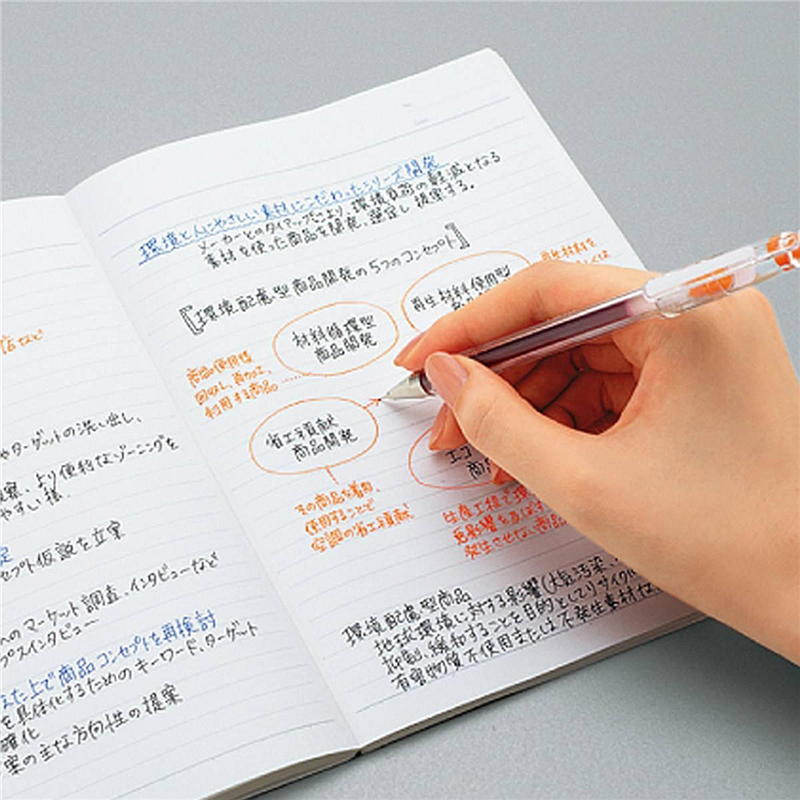 店など
ターゲットの洗い出し、
より便利なゾーニングを
やすい様、
セプト仮説を立案
へのマーケット調査、インタビューなど
プスインタビュー
えた上で商品コンセプトを再検討
を具体化するためのキーワード、ターゲット
確化
案の主な方向性の提案
環境と人にやさしい素材にこだわったシリーズ開発
メーカーとのタイアップにより、環境負荷の軽減となる
素材を使った商品を開発、選定し提案する。
【環境配慮型商品開発の5つのコンセプト】
材料循環型
商品開発
再生材料使用型
商品
再生材料を
商品使用後
回収し、再加工、
利用する商品
省エネ貢献
商品開発
その商品を着用、
使用することで
空調の省エネ貢献
エコ
商品
生産工程で環
悪影響を及ぼす
発生させない商品
環境配慮型商品
地球環境に対する影響(大気汚染、
抑制、緩和することを目的としてリサイクル
有害物質不使用または不発生素材な